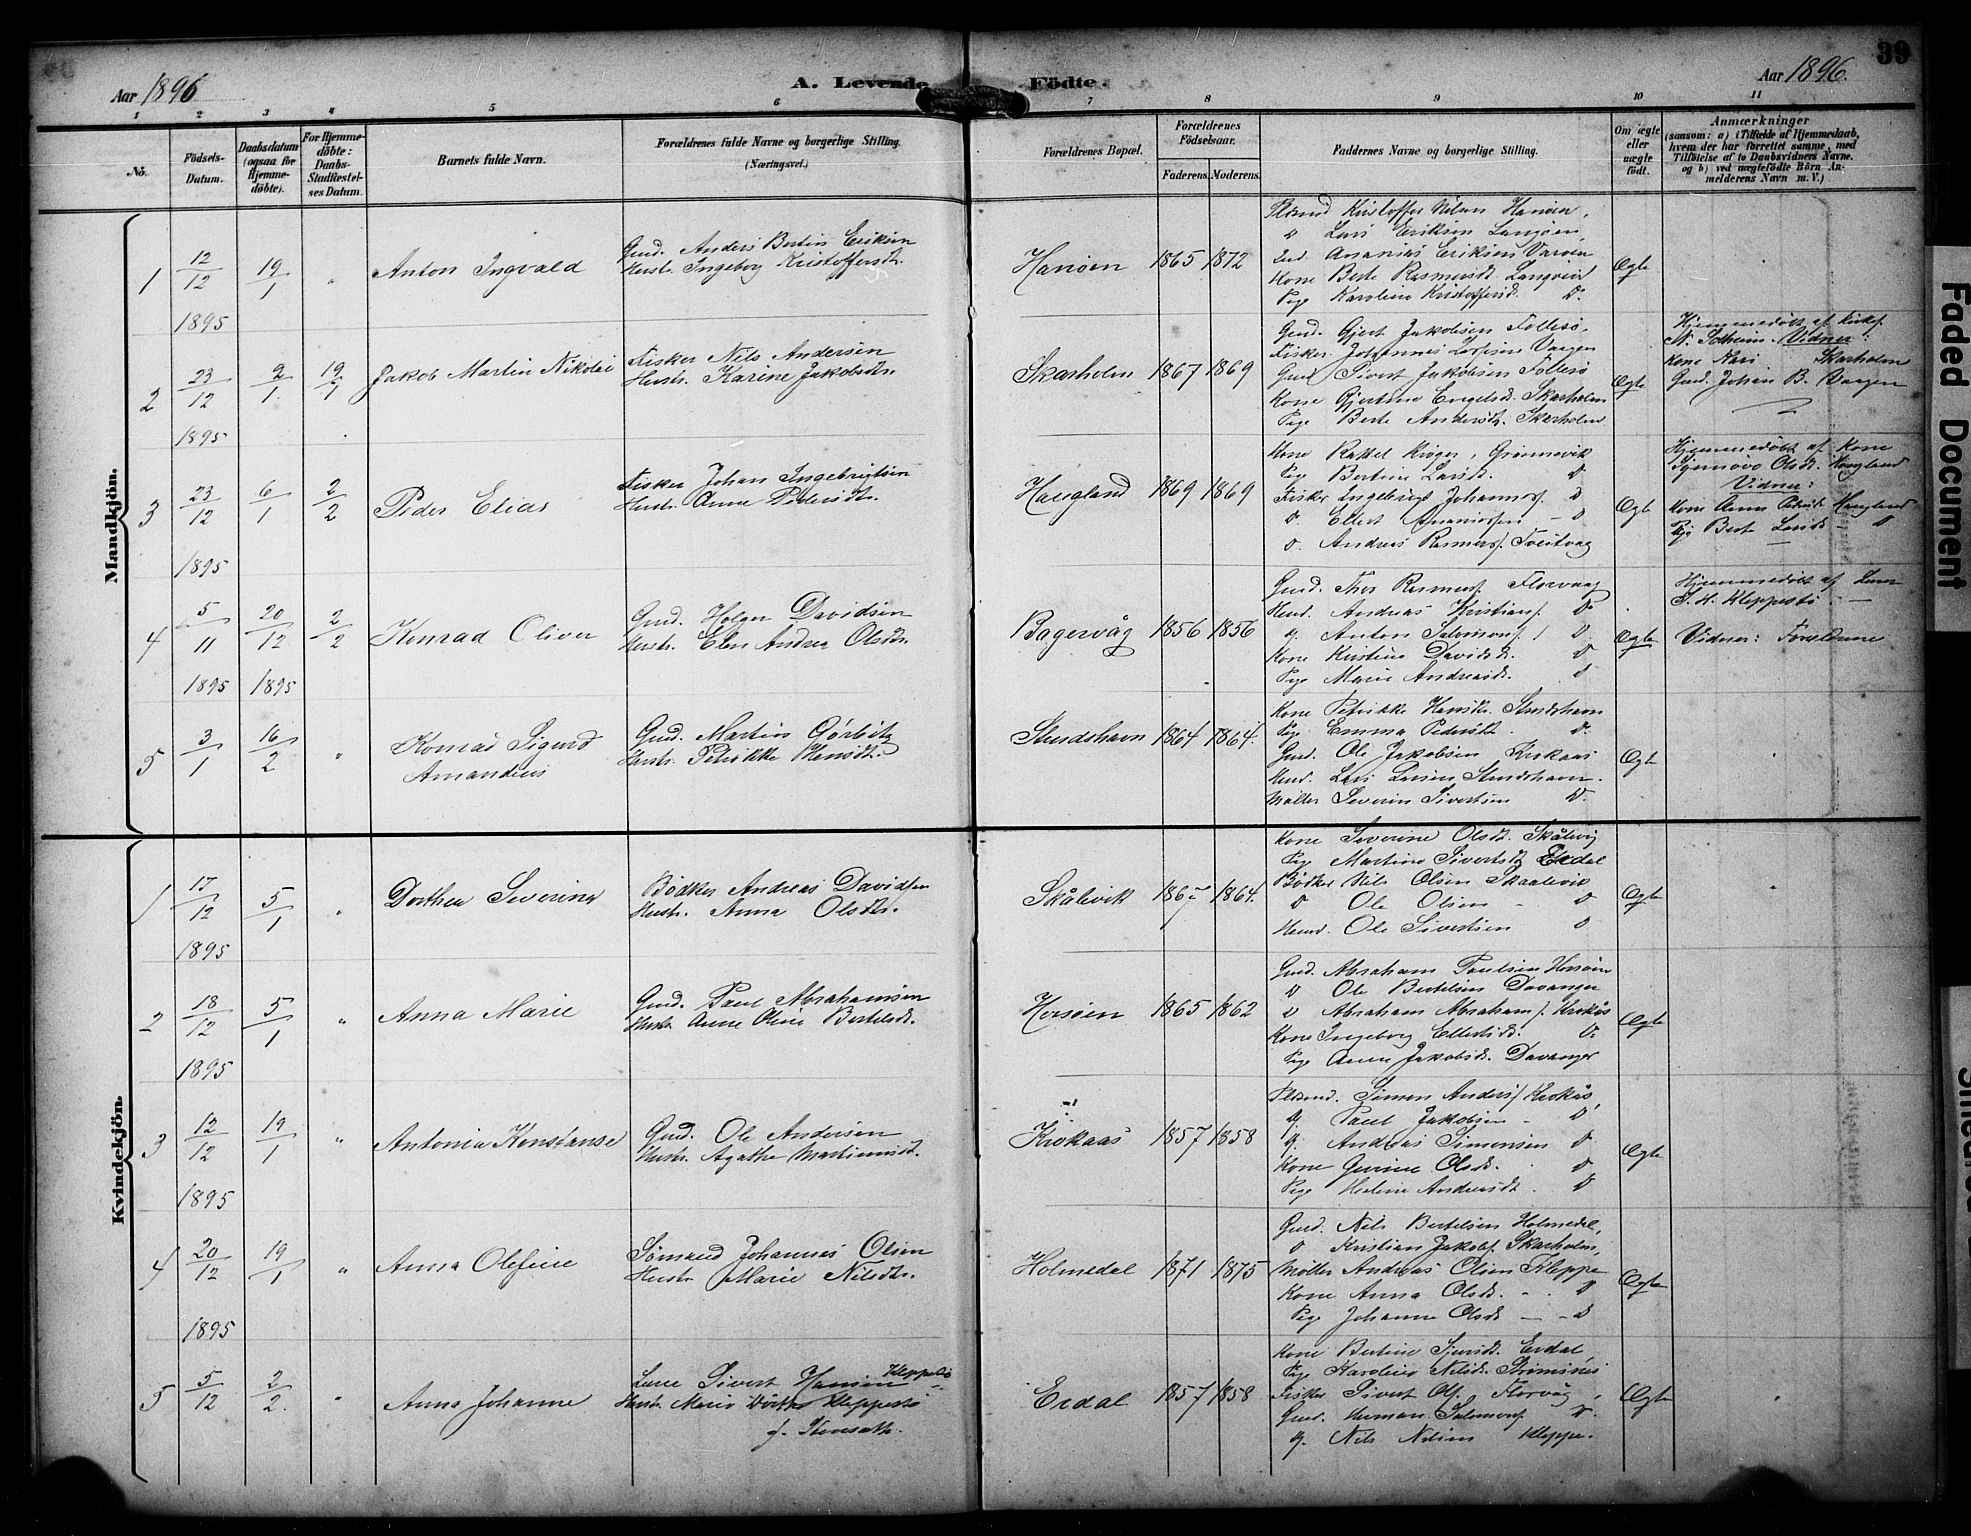 Aar 1896
A. Levende Födte.
Aar 1896.
39
1 2 3 4 5 6 7 8 9 10 11
No.
Födsels-Datum.
Daabsdatum (ogsaa for Hjemme-döbte).
For Hjemme-döbte: Daabs-Stadfæstel-ses Datum.
Barnets fulde Navn.
Forældrenes fulde Navne og borgerlige Stilling.
(Næringsvei.)
Forældrenes Bopæl.
Forældrenes Födselsaar.
Faderens. Moderens.
Faddernes Navne og borgerlige Stilling.
Om ægte eller uægte födt.
Anmærkninger
(saasom: a) i Tilfælde af Hjemmedaab, hvem der har forrettet samme, med Tilföielse af to Daabsvidners Navne. og b) ved uægtefödte Börn An-melderens Navn m. V.)
Mandkjön.
1 12/12 1895 19/1 "
Anton Ingvald
Gmd. Anders Bertin Eriksen
Hustr. Ingeborg Kristoffersdtr.
Hanöen 1865 1872
Kristoffer Nilsen Hanöen,
D Lars Eriksen Langöen,
Ananias Eriksen
Kone Berte Rasmusdt.
Pige Karoline Kristoffersd. Do
Ægte
2 23/12 1895 2/1 19/1
Jakob Martin Nikolai
Fisker Nils Andersen
Hustr. Karine Jakobsdtr.
Skarholm 1867 1869
Gmd. Gjert Jakobsen Follesö,
Fisker Johannes Vaagen
Gmd Sivert Jakobsen Follesö
Kone Gjertine Engelsd. Skarholm
Pige Berte Andersdt. Skarholm
Ægte
Hjemmedöbt af Kirkes.
N. Solheim. Vidner:
Kone Kari Skarholm
Gmd. Johan B. Vaagen
3 23/12 1895 6/1 2/2
Peder Elias
Fisker Johan Ingebrigtsen
Hustr. Anna Pedersdtr.
Haugland 1869 1869
Kone Rakkel Kröger, Grönnevik
Pige Bertine Larsdt. D
Fisker Ingebrigt Johannes. D
D. Ellert Ananiassen - D
D. Andreas Rasmus. Tveitvaag
Ægte
Hjemmedöbt af Kone
Synnove Olsdt. Haugland
Vidner:
Kone Anna Haugland
Pige Berte Larsdt. - D
4 5/11 1895 20/12 1895 2/2
Konrad Oliver
Gmd. Holger Davidsen
Hustr. Elen Andrea Olsdtr.
Bagervåg 1856 1856
Gmd. Thor Rasmus. Florvaag
Andreas Kristians. Do
g. Anton Salomons. D
Kone Kristine Davidsd. D
Pige Marie Andreasdt. D
Ægte
Hjemmedöbt af Lærer
S. H. Kleppestö
Vidner: Forældrene
5 3/1 16/2 "
Konrad Sigurd
Amandeus
Gmd. Martin Görbitz
Hustr. Petrikke Hansdt.
Strudshavn 1864 1864.
Kone Petrikke Hansdt. Strudshavn
Pige Emma Pedersdt. D.
Gmd. Ole Jakobsen Krokaas
Lars Larsen Strudshavn.
Möller Severin Sivertsen D.
Ægte
Kvindekjön.
1 17/12 1895 5/1 "
Dorthea Severine
Bödker Andreas Davidsen
Hustr. Anna Olsdtr.
Skålevik 1864.
Kone Severine Olsdt. Skålevig
Pige Martine Sivertsdt. Erdal
Bödker Nils Olsen Skaalevik
D Ole Olsen - D
Ole Sivertsen D
Ægte
2 18/12 1895 5/1 "
Anna Marie
Gmd. Paul Abrahamsen
Hustr. Anne Oline Bertelsdt.
Horsöen 1865 1862
Gmd. Abraham Paulsen Horsöen
D Ole Bertelsen Davanger
D Abraham Abraham. Krokås
Kone Ingeborg Ellertsd. D.
Pige Anne Jakobsdt. Davanger
Ægte
3 12/12 1895 19/1 "
Antonia Konstanse
Gmd. Ole Andersen
Hustr. Agathe Martinusdt.
Krokaas 1857 1858
Simon Anders. Krokås,
g. Paul Jakobsen - D
g. Andreas Simonsen D
Kone Olsdt. D
Pige Helene Andreasdt. D
Ægte
4 20/12 1895 19/1 "
Anna Olefine
Sömand Johannes Olsen
Hustr. Marie Nilsdtr.
Holmedal 1871 1875
Gmd. Nils Bertelsen Holmedal,
D Kristian Jakobs. Skarholm,
Möller Andreas Olsen Kleppe
Kone Anna Olsdt. D
Pige Johanne Olsdt. - - D
Ægte
5 5/12 2/2. "
Anna Johanne
Lærer Sivert Hansen Kleppestö
Hustr. Marie Kleppestö
f.
Erdal 1857 1858
Kone Bertine Erdal
Pige Karoline Nilsdt.
Fisker Sivert Ols. Florvåg,
Gmd. Herman Salomons. D.
g. Nils Nilsen Kleppe.
Ægte
Faded Document